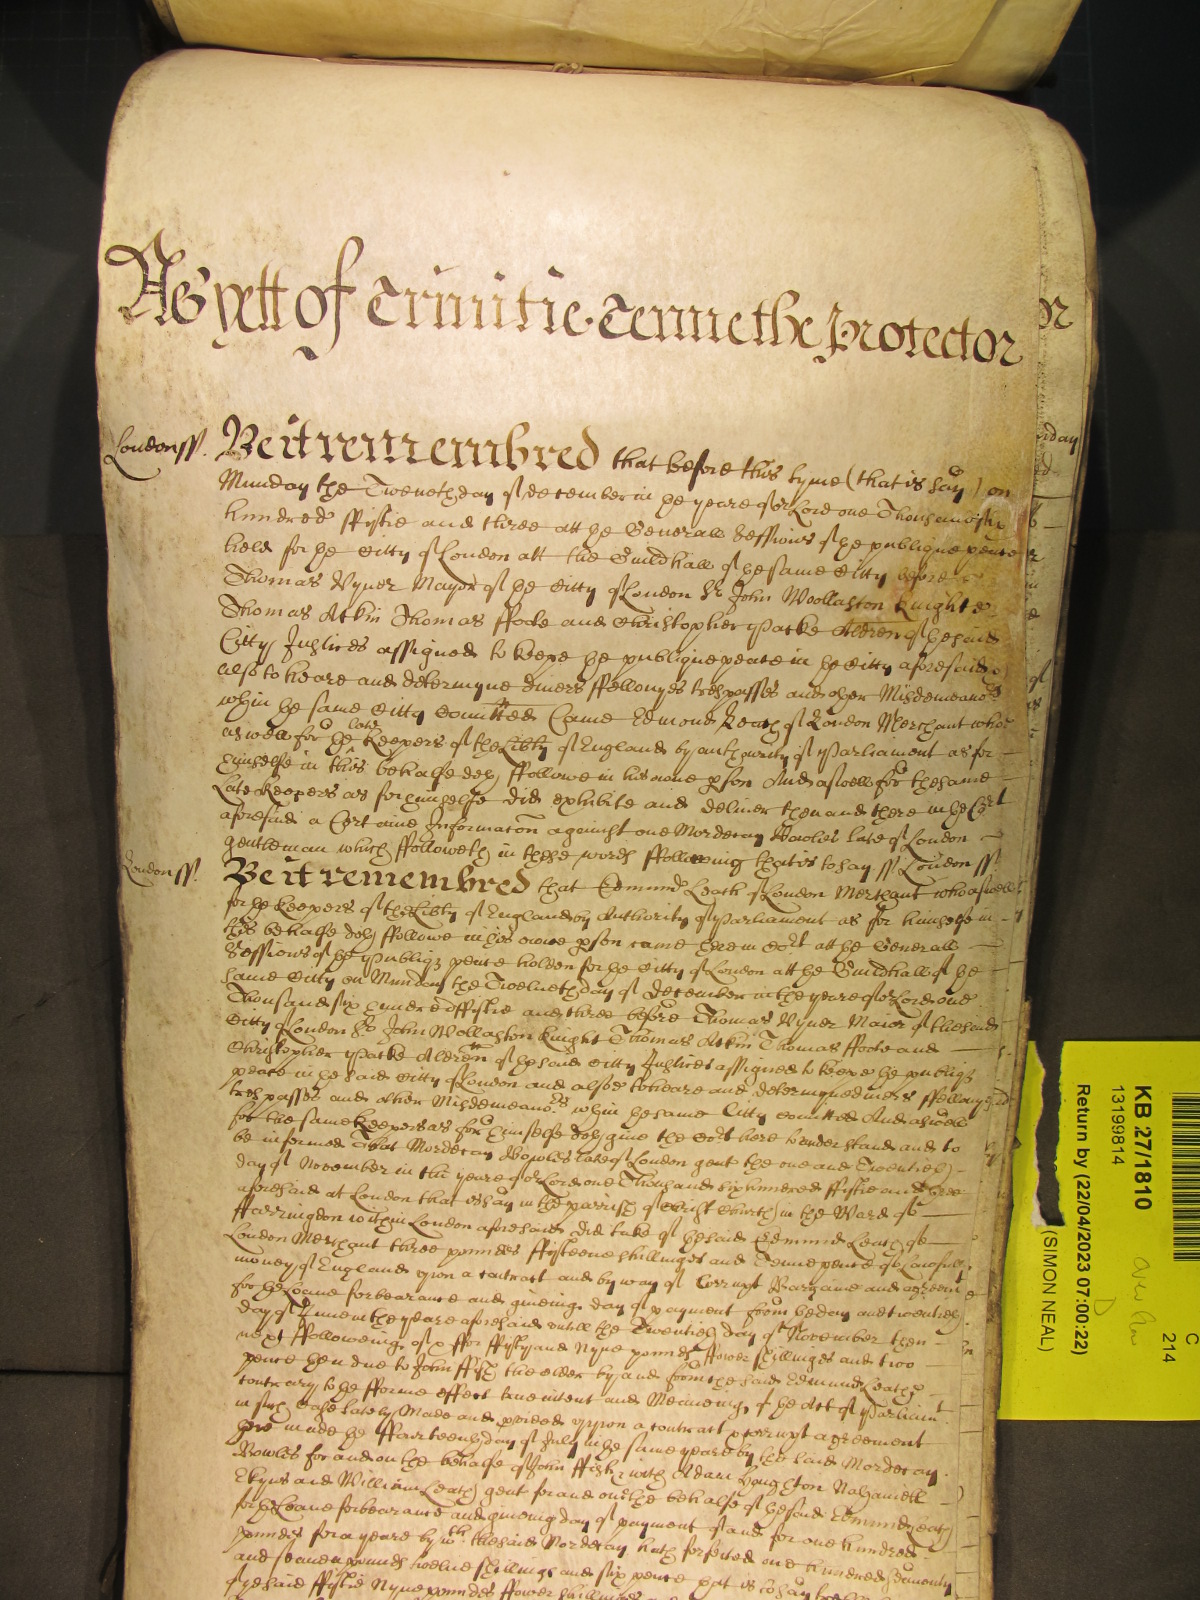 As yett of Trinitie Terme the Protector
London ss. Be it remembred that before this tyme (that is say) on
Munday the Twelveth day of december in the yeare of or Lord one Thousand six
hundred ffiftie and three att the Generall Sessions of the publique peace
held for the Citty of London att the Guildhall of the same Citty before
Thomas Vyner Mayor of the Citty of London Sr John Woollaston Knighte
Thomas Atkin Thomas ffoote and Christopher Packe Aldren of the said
Citty Justices assigned to keepe the publique peace in the Citty aforesaid
also to heare and determyne divers ffellonyes trespasses and other Misdemeanors
wthin the same Citty comitted Came Edmond Leach of London Merchant who
as well for the late Keepers of the Libty of England by authority of Parliament as for
himselfe in this behalfe doth ffollowe in his owne pson And aswell for the same
late Keepers as for himselfe did exhibite and deliver then and there in the Cort
aforesaid a Certaine Informacon against one Mordecay Bowles late of London
gentleman which ffolloweth in these words ffollowing that is to say ss London ss
London ss. Be it remembred that Edmund Leach of London Merchant who aswell
for the Keepers of the Libty of England by Authority of Parliament as for himselfe in
this behalfe doth ffollowe in his owne pson came here in Cort att the Generall
Sessions of the Publiq peace holden for the Citty of London att the Guildhall of the
same Citty on Munday the Twelveth day of December in the yeare of or Lord one
Thousand six hundred ffiftie and three before Thomas Vyner Maior of the said
Citty of London Sr John Wollaston Knight Thomas Atkin Thomas ffoote and
Christopher Packe Aldren of the said Citty Justices assigned to keepe the publiq
peace in the said Citty of London and alsoe to heare and determyne divers ffellonyes
trespasses and other Misdemeanors wthin the same Citty comitted And aswell
for the same Keepers as for himselfe doth give the Cort here to understand and to
be informed That Mordecay Bowles late of London gent the one and Twentieth
day of November in the yeare of or Lord one Thousand six hundred ffiftie and three
aforesaid at London that is to say in the parrish of Christ Church in the Ward of
ffarringdon within London aforesaid did take of the said Edmund Leach of
London Merchant three pounds ffifteene shillinges and Tenne pence of Lawfull
money of England upon a contract and by way of Corrupt Bargaine and agreemt
for the Loane forbearance and giveing day of payment from the day and twentieth
day of June in the yeare aforesaid untill the Twentieth day of November then
next ffolloweing of & ffor ffifty and Nyne pounds ffower shillinges and two
pence then due to John ffish the elder by and from the said Edmund Leach
contrary to the fforme effect true intent and Meaneing of the Act of Parliamt
in such case lately Made and provided uppon a contract & corrupt agreement
here made the ffourteenth day of July in the same yeare by the said Mordecay
Bowles for and on the behalfe of John ffish with Adam Houghton Nathaniell
Ekyns and William Leach gent for and on the behalfe of the said Edmund Leach
for the Loane forbearance and giveing day of payment of and for one hundred
pounds for a yeare by wch the said Mordecay hath forfeited one hundred seaventy
and seaven pounds twelve shillings and six pence that is to say
of the said ffiftie Nyne pounds ffower shillinges
KB 27/1810
13199814
Return by (22/04/2023 07:00:22)
(SIMON NEAL)
C
214
D